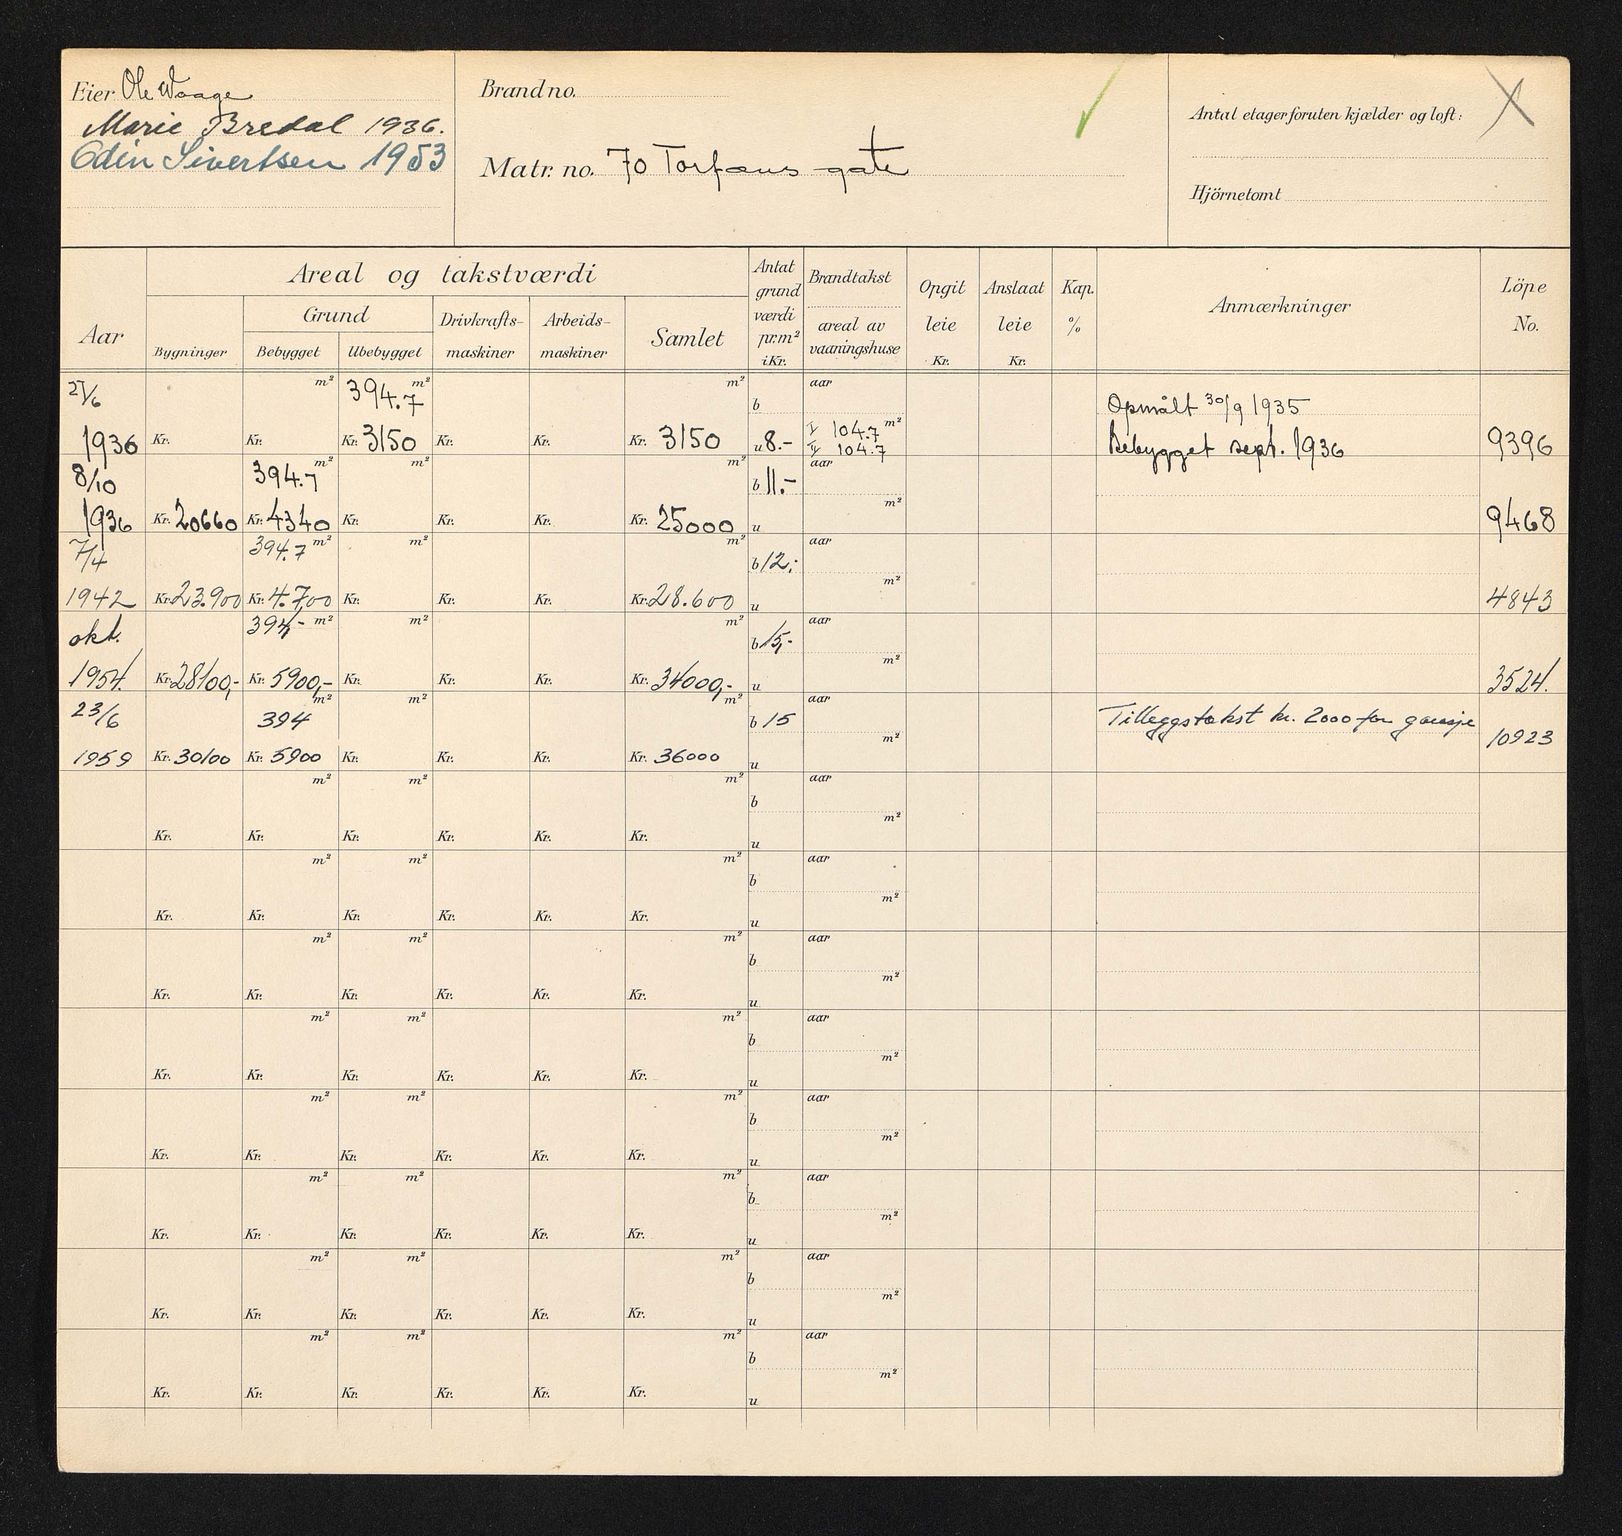 Eier Ole Waage
Marie Bredal 1936.
Odin Sivertsen 1953
Brand no.
Matr. no. 70 Torfæus gate
Antal etager foruten kjælder og loft:
Hjörnetomt
Aar
Areal og takstværdi
Grund
Bygninger
Bebygget
Ubebygget
Drivkrafts-
maskiner
Arbeids-
maskiner
Samlet
Antat
grund
værdi
pr.m²
i Kr.
Brandtakst
areal av
vaaningshuse
Opgit
leie
Kr.
Anslaat
leie
Kr.
Kap.
%
Anmærkninger
Löpe
No.
27/6 m² 394.7 m² m² b aar Opmålt 30/9 1935
1936 Kr. Kr. Kr. 3150 Kr. Kr. Kr. 3150 u 8.- I 104.7 m² II 104.7 Bebygget sept. 1936 9396
8/10 394.7 m² m² m² b 11.- aar m²
1936 Kr. 20660 Kr. 4340 Kr. Kr. Kr. Kr. 25000 u 9468
7/4 394.7 m² m² m² b 12,- aar m²
1942 Kr. 23.900 Kr. 4.700 Kr. Kr. Kr. Kr. 28.600 u 4843
okt. 394,- m² m² m² b 15,- aar m²
1954. Kr. 28100,- Kr. 5900,- Kr. Kr. Kr. Kr. 34000,- u 3524.
23/6 394 m² m² m² b 15 aar m² Tilleggstakst kr. 2000 for garasje
1959 Kr. 30100 Kr. 5900 Kr. Kr. Kr. Kr. 36000 u 10923
m² m² m² b aar m²
Kr. Kr. Kr. Kr. Kr. Kr. u
m² m² m² b aar m²
Kr. Kr. Kr. Kr. Kr. Kr. u
m² m² m² b aar m²
Kr. Kr. Kr. Kr. Kr. Kr. u
m² m² m² b aar m²
Kr. Kr. Kr. Kr. Kr. Kr. u
m² m² m² b aar m²
Kr. Kr. Kr. Kr. Kr. Kr. u
m² m² m² b aar m²
Kr. Kr. Kr. Kr. Kr. Kr. u
m² m² m² b aar m²
Kr. Kr. Kr. Kr. Kr. Kr. u
m² m² m² b aar m²
Kr. Kr. Kr. Kr. Kr. Kr. u